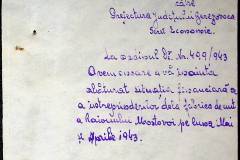 către
Prefectura Județului Berezovca
Serv. Economic.
La ordinul Dv. Nr. 499/943
Avem onoare a vă înainta
alăturat situația financiară
a întreprinderilor dela fabrica de unt
a Raionului Mostovoi pe luna Mai
Aprilie 1943.